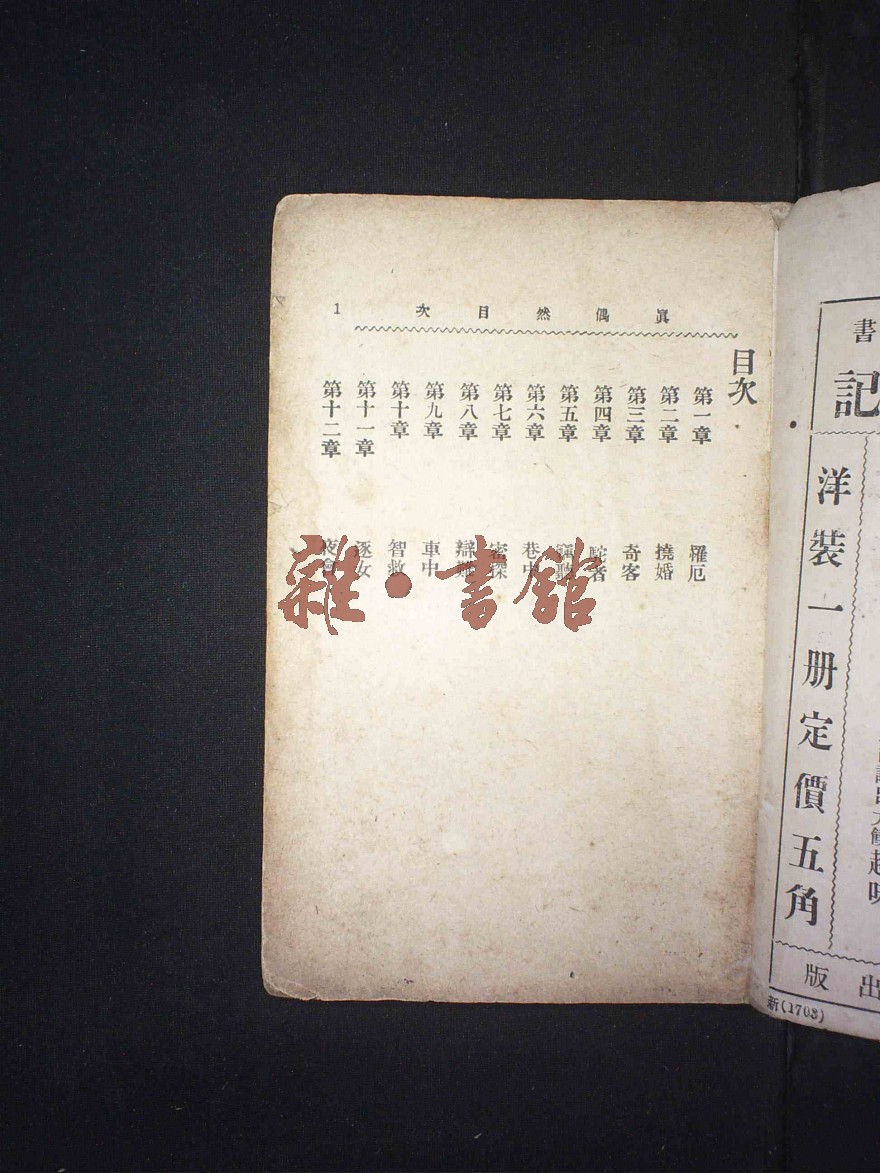 眞偶然目次 1
目次
第一章 罹厄
第二章 撓婚
第三章 奇客
第四章 駝者
第五章 竊聽
第六章 巷中
第七章 密探
第八章 辯難
第九章 車中
第十章 智救
第十一章 逐女
第十二章 夜會
雜·書館
書
記
洋裝一册定價五角
出版
新(1703)